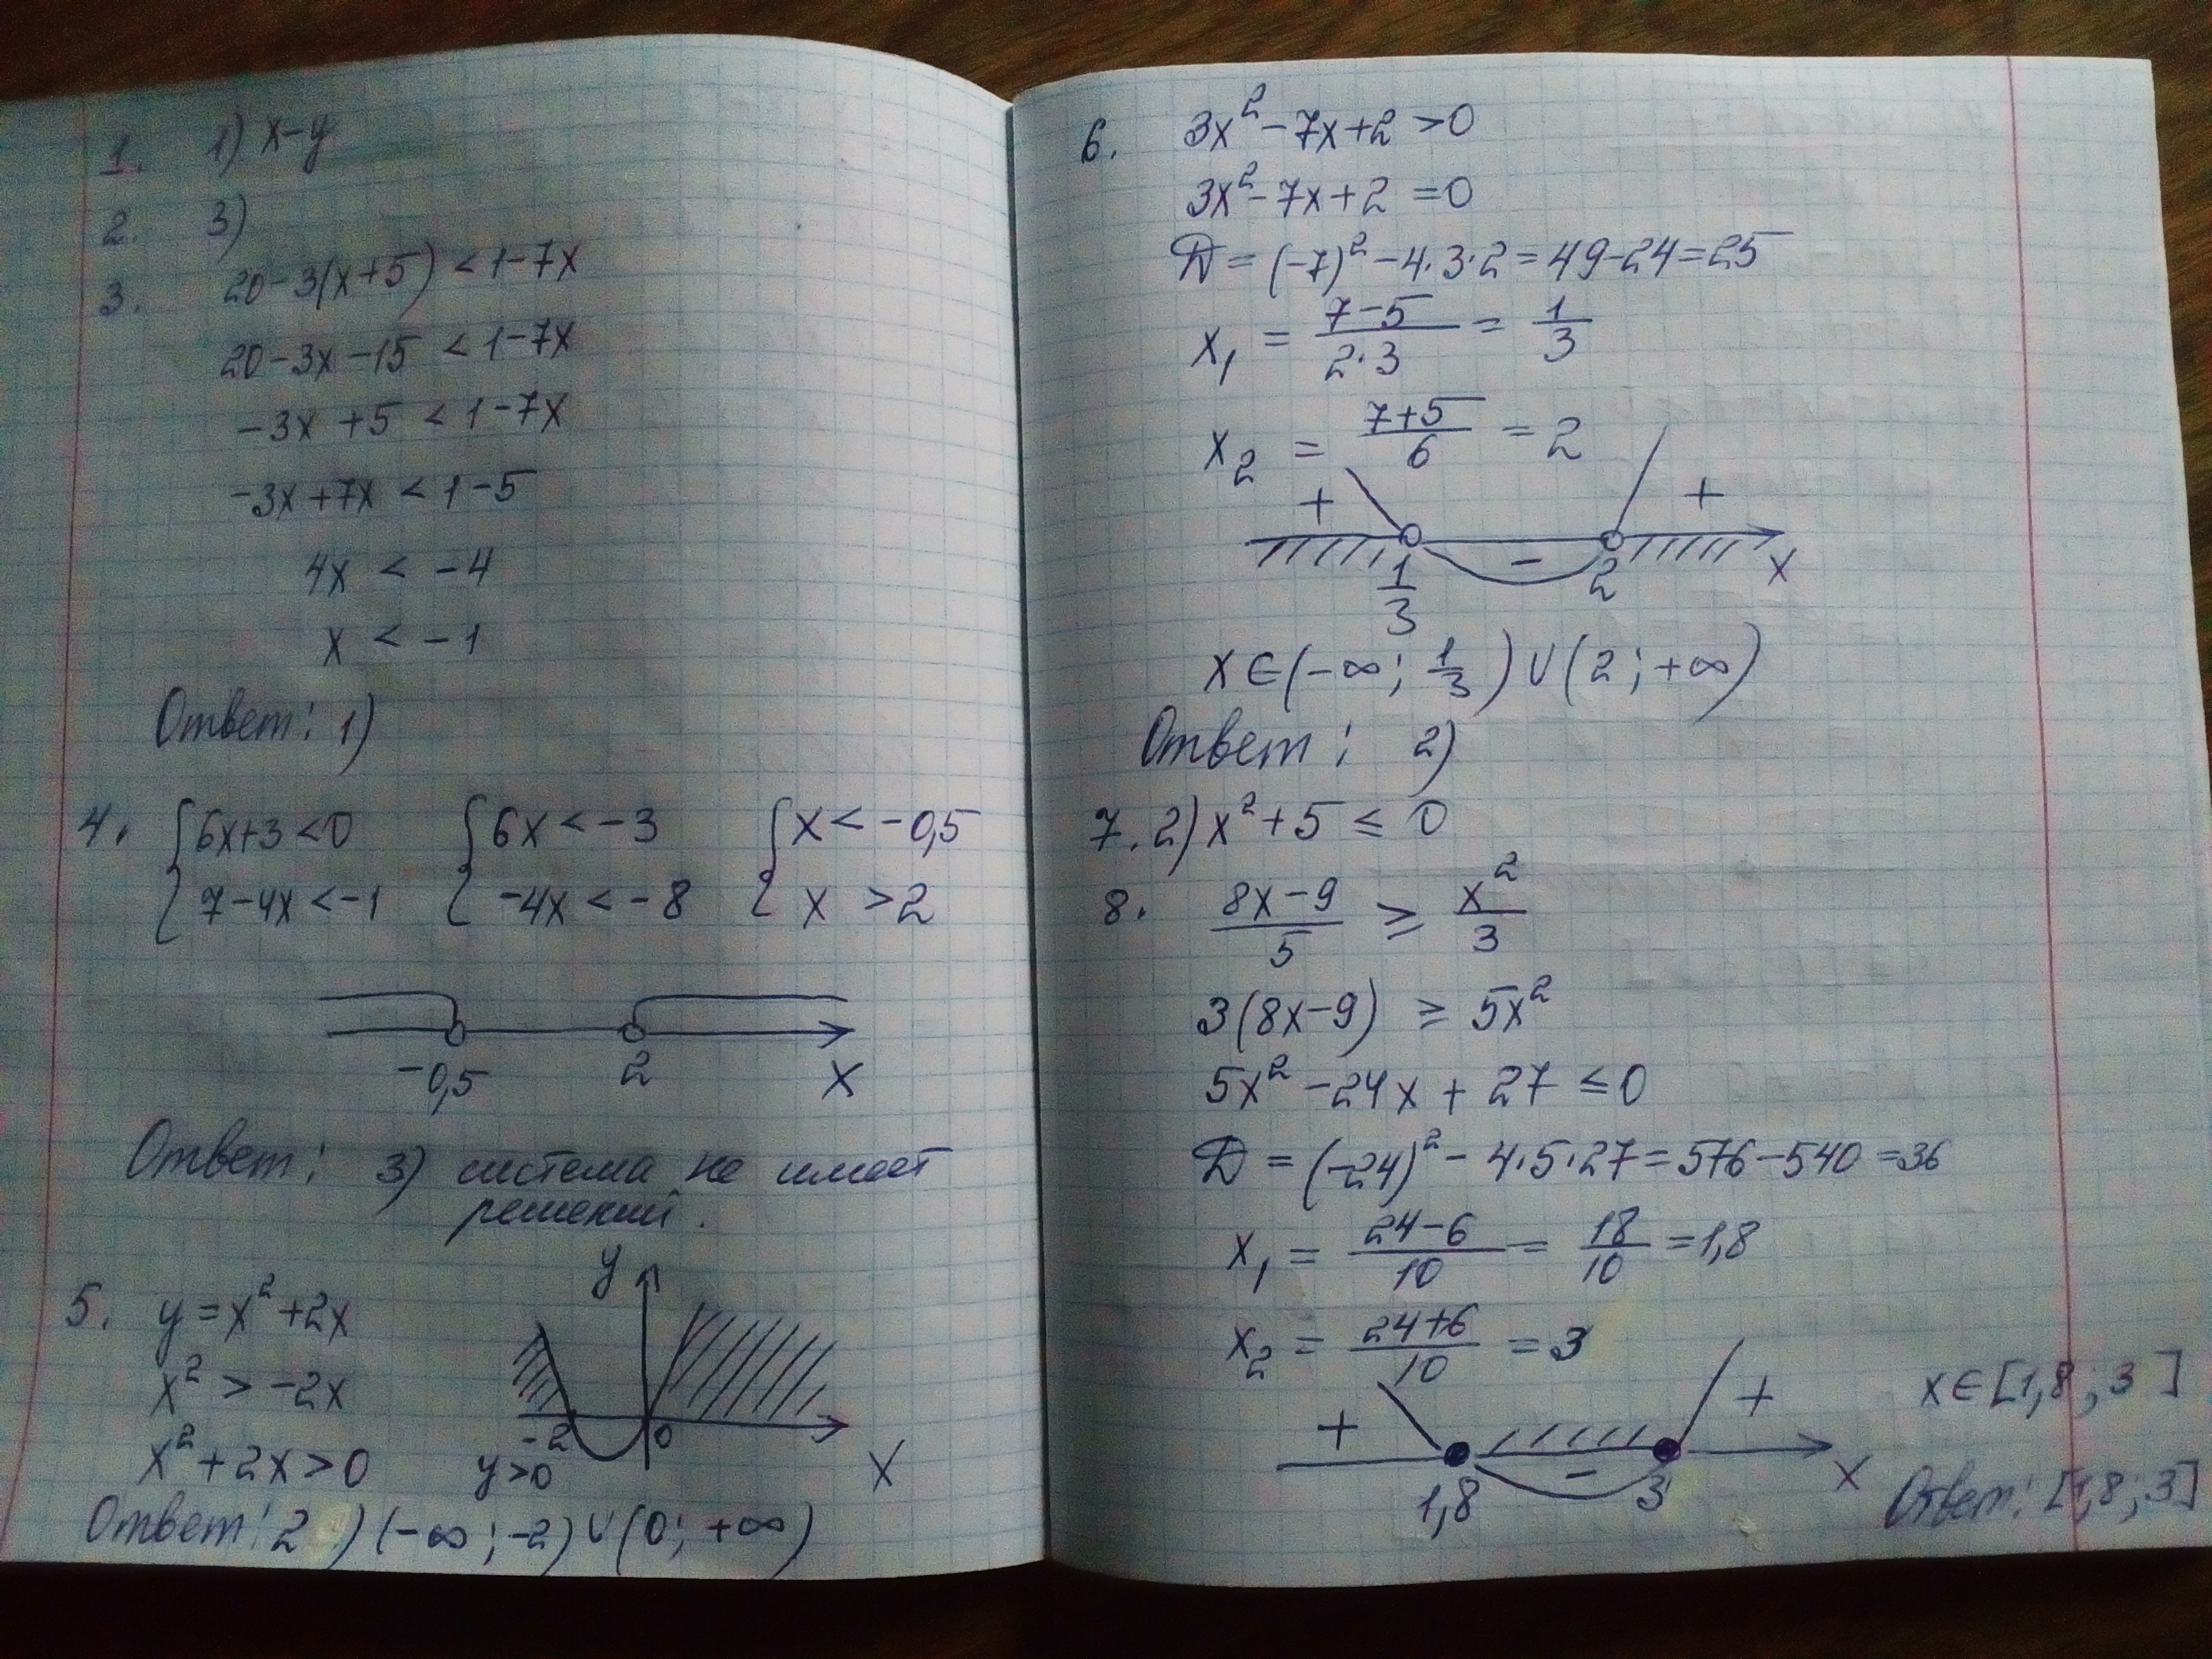 1. 1) x-y
2. 3)
3. 20-3(x+5) < 1-7x
20-3x-15 < 1-7x
-3x+5 < 1-7x
-3x+7x < 1-5
4x < -4
x < -1
Ответ: 1)
4. { 6x+3<0 { 6x < -3 { x < -0,5
7-4x < -1 -4x < -8 x > 2
-0,5 2 x
Ответ: 3) система не имеет
решений.
5. y = x²+2x y
x² > -2x
-2 0
x²+2x>0 y>0 x
Ответ: 2) (-∞; -2) ∪ (0; +∞)
6. 3x²-7x+2 >0
3x²-7x+2 =0
D = (-7)²-4·3·2 = 49-24=25
x₁ = \frac{7-5}{2·3} = \frac{1}{3}
x₂ = \frac{7+5}{6} = 2
+ - +
\frac{1}{3} 2 x
x∈(-∞; \frac{1}{3}) ∪ (2; +∞)
Ответ: 2)
7. 2) x²+5 ≤ 0
8. \frac{8x-9}{5} ≥ \frac{x²}{3}
3(8x-9) ≥ 5x²
5x²-24x+27 ≤0
D = (-24)² - 4·5·27 = 576-540 =36
x₁ = \frac{24-6}{10} = \frac{18}{10} = 1,8
x₂ = \frac{24+6}{10} = 3
+ - +
1,8 3 x
x∈[1,8; 3]
Ответ: [1,8; 3]